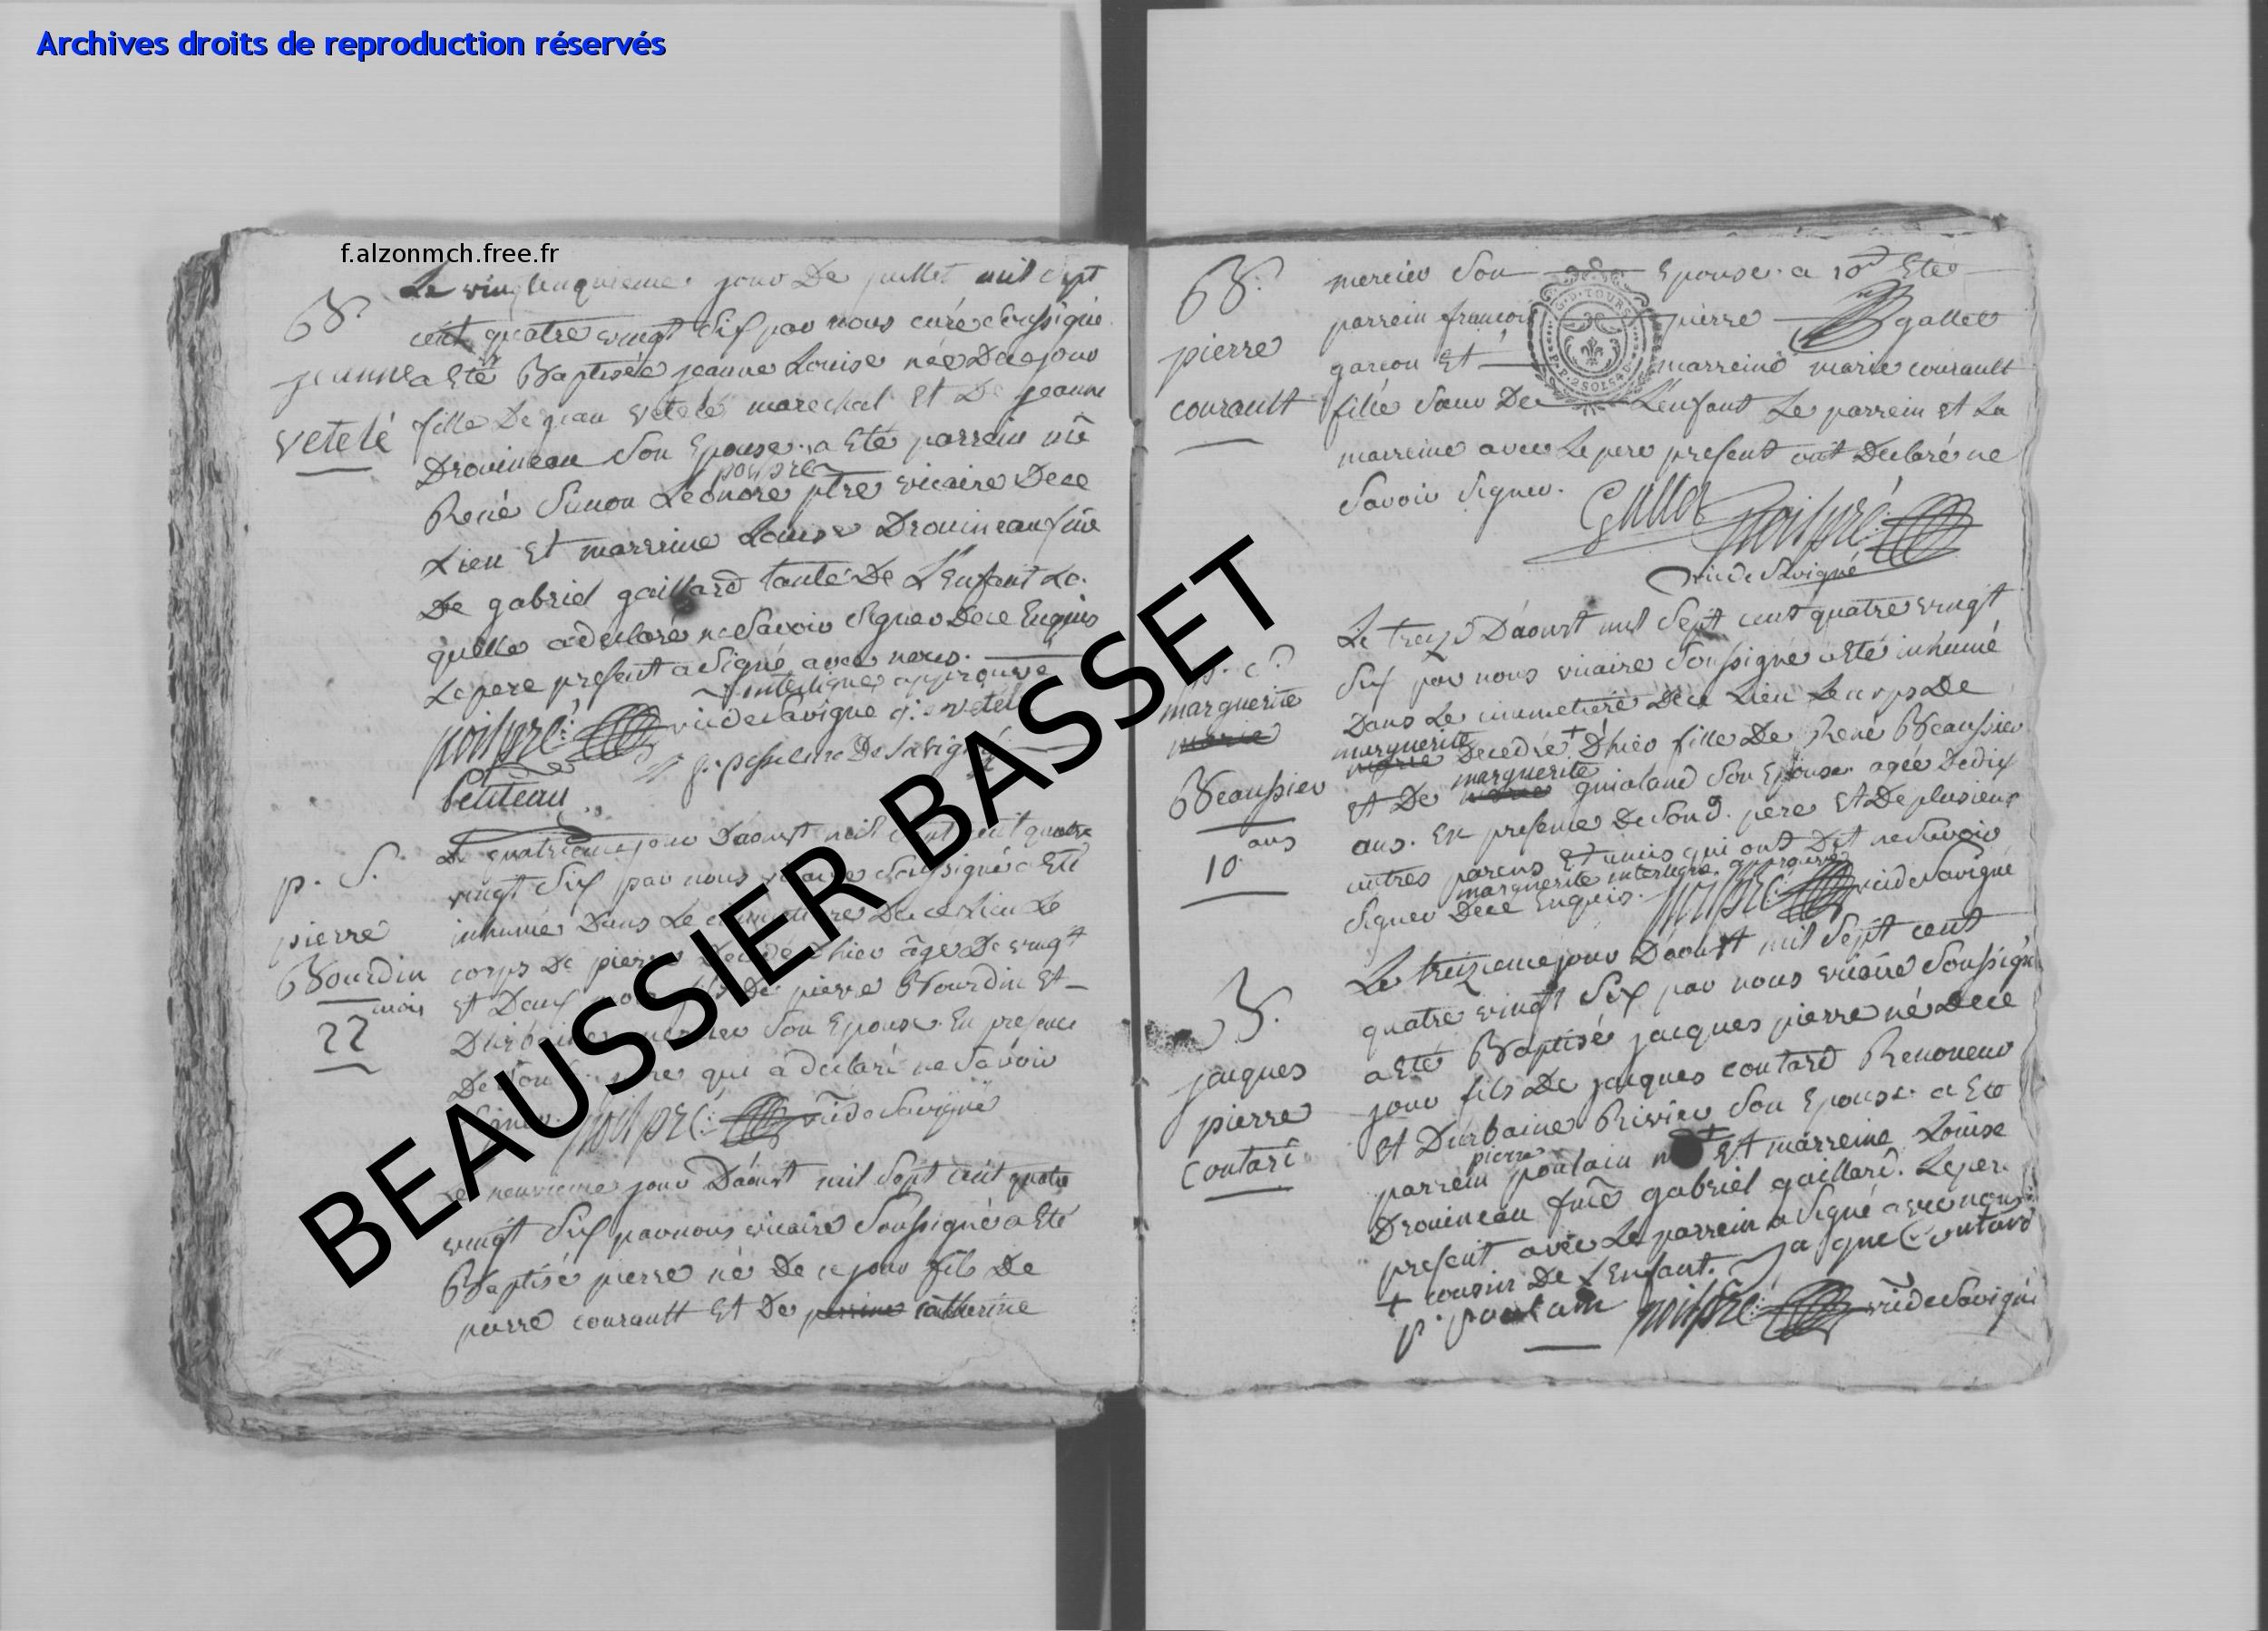 Archives droits de reproduction réservés
f.alzonmch.free.fr
BEAUSSIER BASSET
B.
jeanne
vetelé
Le vingt cinquieme jour De juillet mil sept
cent quatre vingt Six par nous curé Soussigné
a Eté Baptisée jeanne Louise née De ce jour
fille De jean vetelé marechal Et De jeanne
Drouineau Son Epouse. a Eté parrein
poispré
René Simon Leonore ptre vicaire De ce
Lieu Et marreine Louise Drouineau
De gabriel gaillard tante De L'enfant La
quelle a declaré ne Savoir Signer De ce Enquis
Le pere present a Signé avec nous.
interligne approuvé
poispré vic de Savigné
De Savigné
Petiteau
p. S.
pierre
Bourdin
22 mois
Le quatrieme jour Daoust mil Sept cent quatre
vingt Six par nous vicaire Soussigné a Eté
inhumé Dans Le cimetiere De ce Lieu Le
corps De pierre Decedé D'hier âgé De vingt
Et Deux mois fils De pierre Bourdin Et
Durbaine Son Epouse. En presence
De Son pere qui a declaré ne Savoir
Signer. poispré vic de Savigné
Le neuvieme jour Daoust mil Sept cent quatre
vingt Six par nous vicaire Soussigné a Eté
Baptisé pierre né De ce jour fils De
pierre courault Et De perrine catherine
B.
pierre
courault
mercier Son Epouse. a Eté
parrein francois pierre gallet
garcon Et marreine marie courault
fille Sœur De L'enfant Le parrein Et La
marreine avec Le pere present ont Declaré ne
Savoir Signer.
Gallet poispré
vic de Savigné
marguerite
marie
Beaussier
10 ans
Le treize Daoust mil Sept cent quatre vingt
Six par nous vicaire Soussigné a Eté inhumé
Dans Le cimmetiere De ce Lieu Le corps De
marguerite
marie Decedée + D'hier fille De René Beaussier
marguerite
Et De guioland Son Epouse agée De dix
ans. En presence De Son d. pere Et De plusieurs
autres parens Et amis qui ont Dit ne Savoir
marguerite interligne approuvé
Signer De ce Enquis. poispré vic de Savigné
B.
jacques
pierre
Contard
Le treizieme jour Daoust mil Sept cent
quatre vingt Six par nous vicaire Soussigné
a Eté Baptisé jacques pierre né De ce
jour fils De jacques contard
Et Durbaine Rivier Son Epouse. a Eté
pierre
parrein poulain + Et marreine Louise
Drouineau fme gabriel gaillard. Le pere
present avec Le parrein a Signé avec nous
+ cousin De L'Enfant. Jaque Contard
p. poulain poispré vic de Savigné